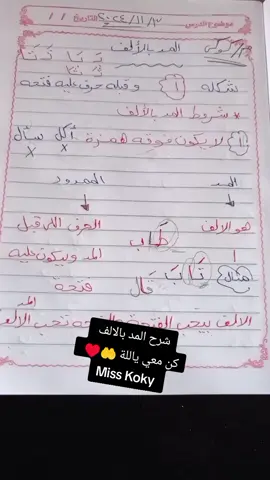 موضوع الدرس ٢٠٢٤/١١/٣
المد بالألف
شكله ا وقبله حرف عليه فتحة
* شروط المد بالألف
لا يكون فوقه همزة أكل سأل
x x
المد الممدود
هو الألف الحرف اللى قبل
ا المد وبيكون عليه
فتحة
طَاب
مثال تَابَ قَال
الألف بيحب الفتحة والفتحة تحب الألف
المد
شرح المد بالالف
كن معي ياللة 🤲 ❤️
Miss Koky